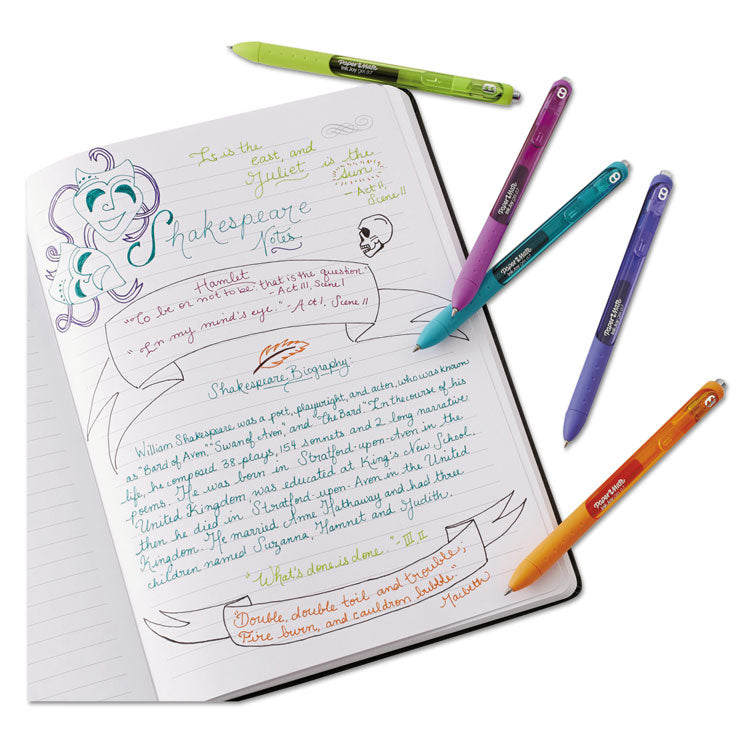 Is is the
east, and
Juliet is the
Sun
- Act II,
Scene II
Shakespeare
Notes
Hamlet
"To be or not to be: that is the question."
- Act III, Scene I
"In my mind's eye." - Act I, Scene II
Shakespeare Biography:
William Shakespeare was a poet, playwright, and actor, who was known
as "Bard of Avon," "Swan of Avon", and "The Bard." In the course of his
life, he composed 38 plays, 154 sonnets and 2 long narrative
poems. He was born in Stratford-upon-Avon in the
United Kingdom, was educated at King's New School,
then he died in Stratford-upon-Avon in the United
Kingdom. He married Anne Hathaway and had three
children named Suzanna, Hamnet and Judith.
"What's done is done." - III II
"Double, double toil and trouble;
Fire burn, and cauldron bubble."
Macbeth
Paper Mate
InkJoy Gel 0.7
Paper Mate
InkJoy
Paper Mate
InkJoy
Paper Mate
InkJoy
Paper Mate
InkJoy